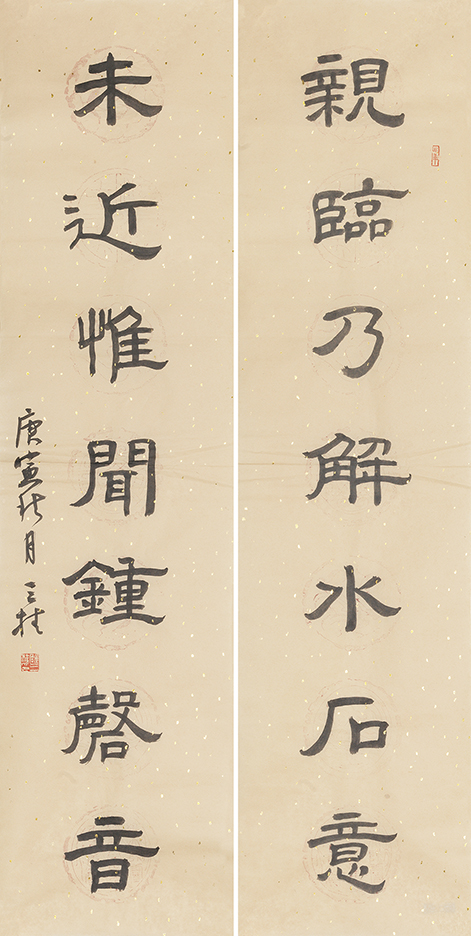 親臨乃解水石意
未近惟聞鍾磬音
庚寅秋月 三桂